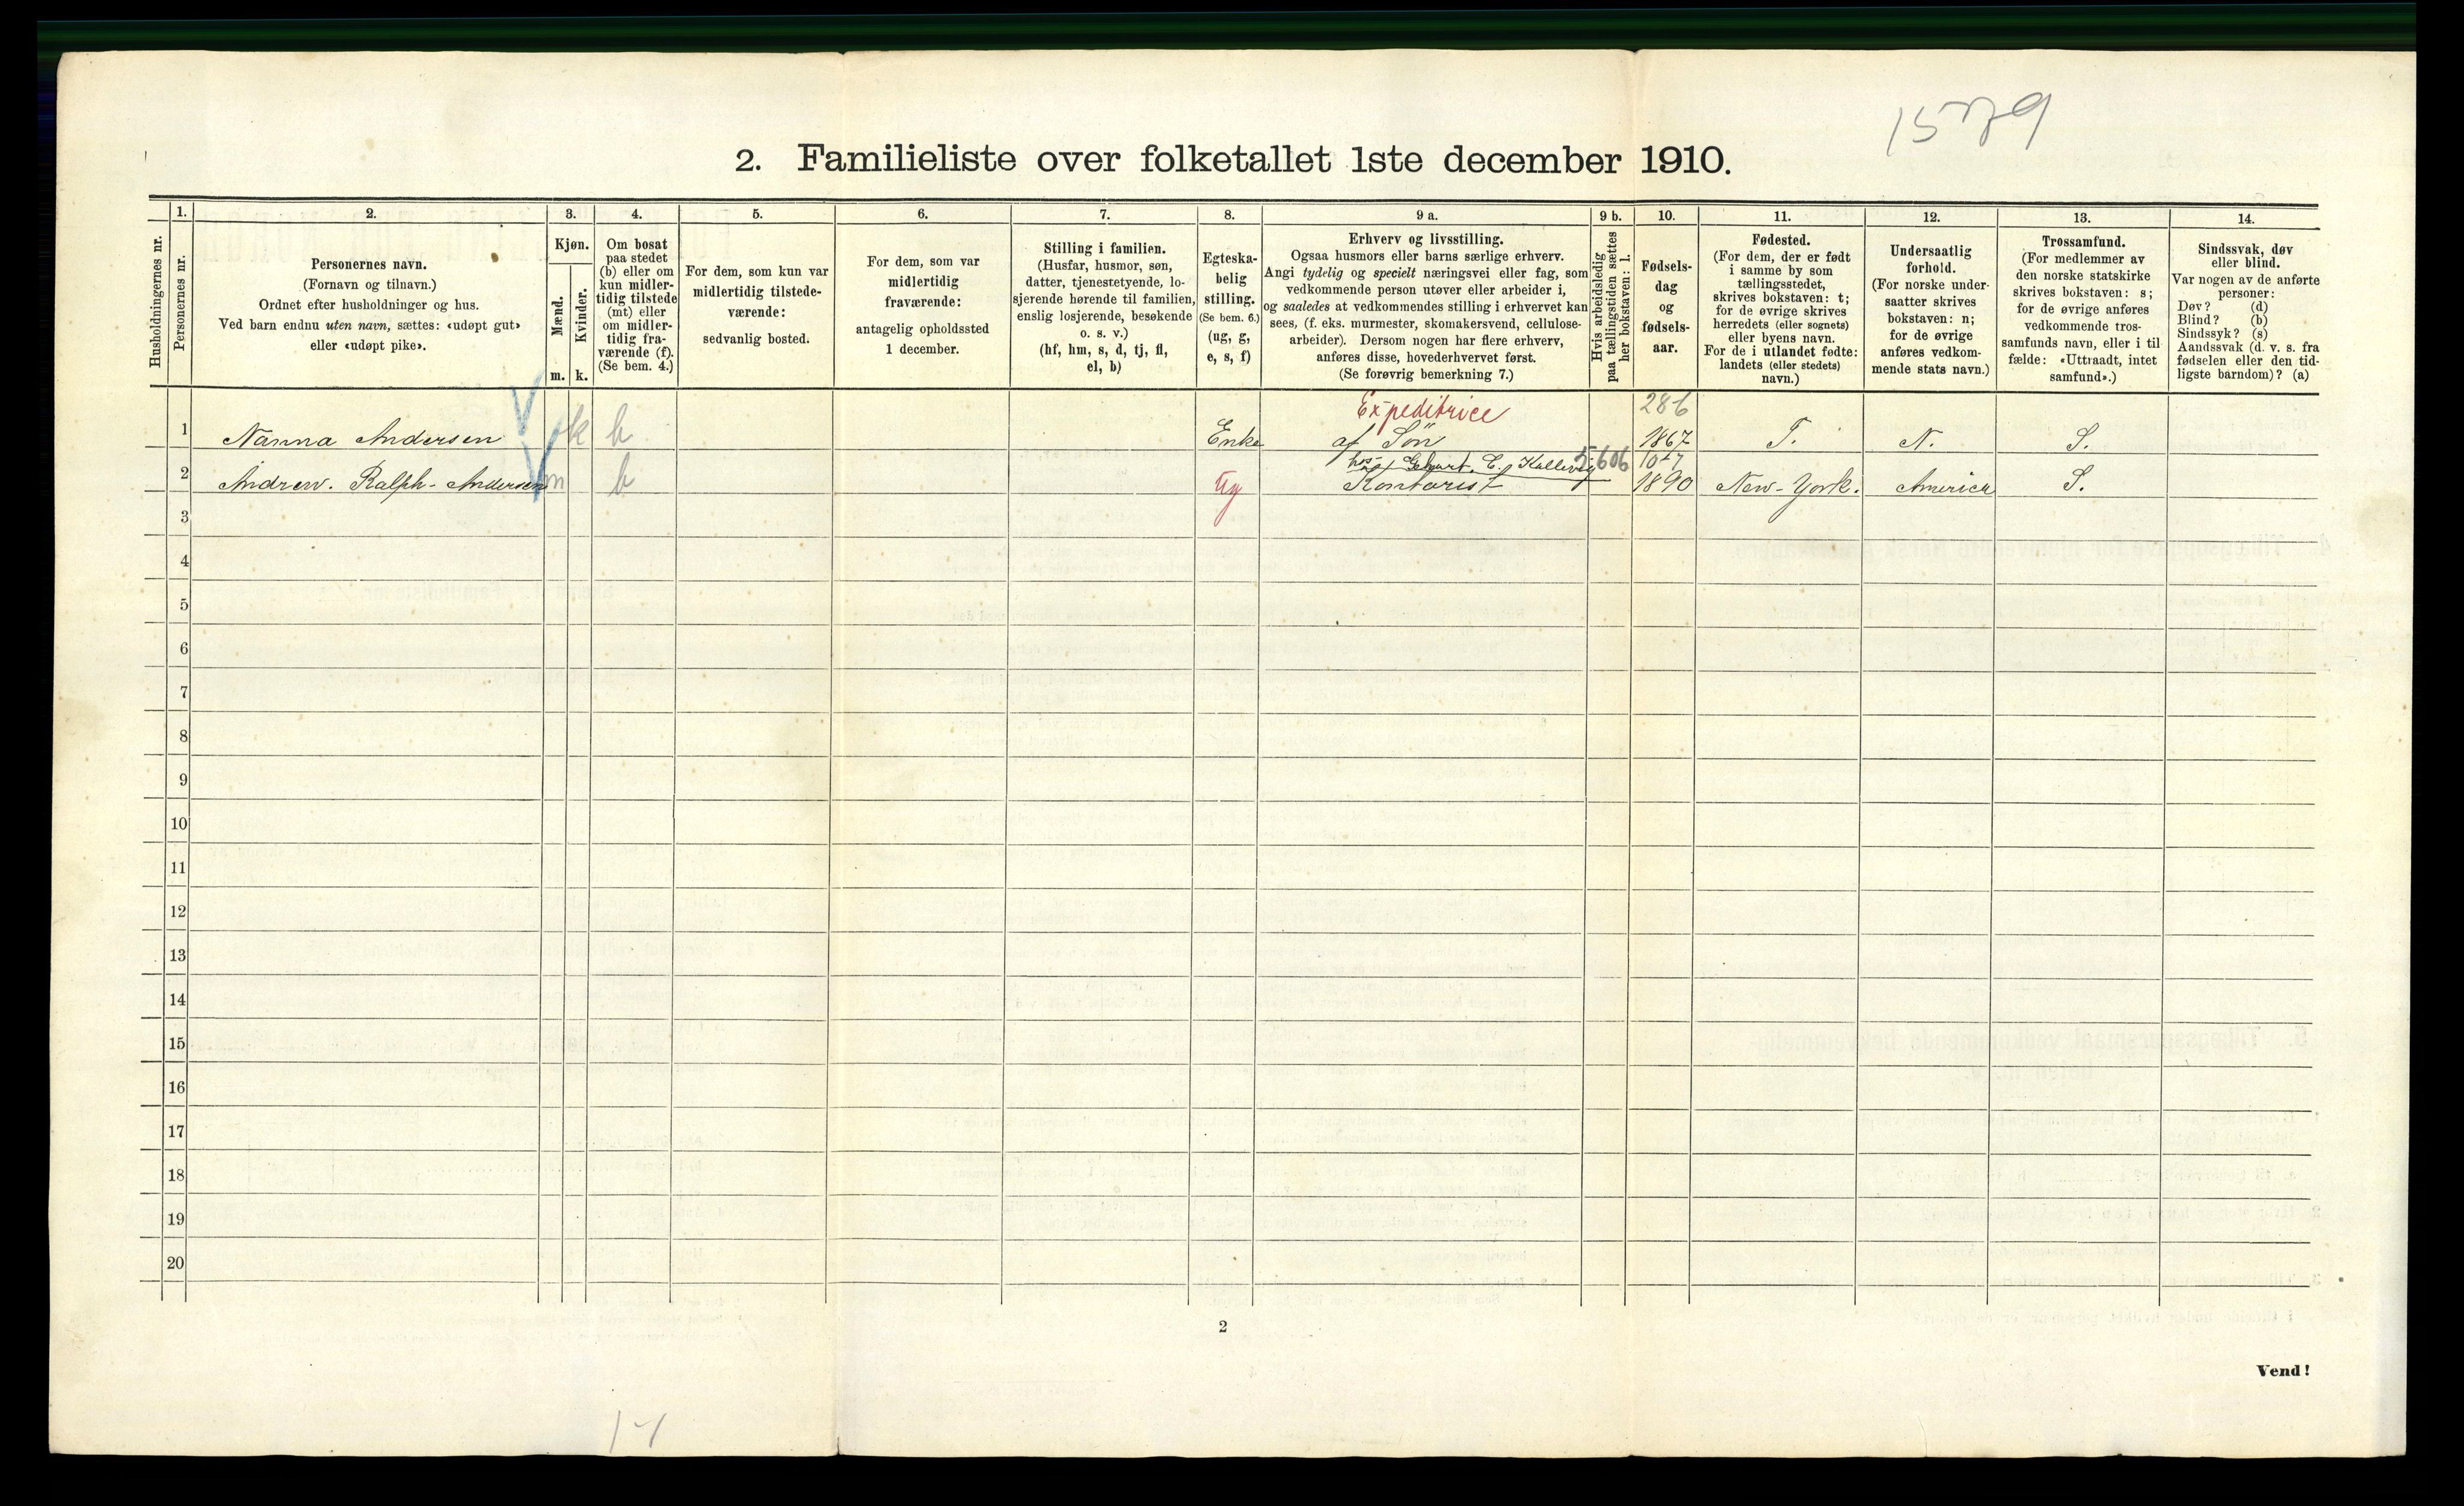 1579
2. Familieliste over folketallet 1ste december 1910.
1. 2. 3. 4. 5. 6. 7. 8. 9 a. 9 b. 10. 11. 12. 13. 14.
Husholdningernes nr.
Personernes nr.
Personernes navn.
(Fornavn og tilnavn.)
Ordnet efter husholdninger og hus.
Ved barn endnu uten navn, sættes: «udøpt gut»
eller «udøpt pike».
Kjøn.
Mænd.
Kvinder.
m. k.
Om bosat
paa stedet
(b) eller om
kun midler-
tidig tilstede
(mt) eller
om midler-
tidig fra-
værende (f).
(Se bem. 4.)
For dem, som kun var
midlertidig tilstede-
værende:
sedvanlig bosted.
For dem, som var
midlertidig
fraværende:
antagelig opholdssted
1 december.
Stilling i familien.
(Husfar, husmor, søn,
datter, tjenestetyende, lo-
sjerende hørende til familien,
enslig losjerende, besøkende
o. s. v.)
(hf, hm, s, d, tj, fl,
el, b)
Egteska-
belig
stilling.
(Se bem. 6.)
(ug, g,
e, s, f)
Erhverv og livsstilling.
Ogsaa husmors eller barns særlige erhverv.
Angi tydelig og specielt næringsvei eller fag, som
vedkommende person utøver eller arbeider i,
og saaledes at vedkommendes stilling i erhvervet kan
sees, (f. eks. murmester, skomakersvend, cellulose-
arbeider). Dersom nogen har flere erhverv,
anføres disse, hovederhvervet først.
(Se forøvrig bemerkning 7.)
Hvis arbeidsledig
paa tællingstiden sættes
her bokstaven: l.
Fødsels-
dag
og
fødsels-
aar.
Fødested.
(For dem, der er født
i samme by som
tællingsstedet,
skrives bokstaven: t;
for de øvrige skrives
herredets (eller sognets)
eller byens navn.
For de i utlandet fødte:
landets (eller stedets)
navn.)
Undersaatlig
forhold.
(For norske under-
saatter skrives
bokstaven: n;
for de øvrige
anføres vedkom-
mende stats navn.)
Trossamfund.
(For medlemmer av
den norske statskirke
skrives bokstaven: s;
for de øvrige anføres
vedkommende tros-
samfunds navn, eller i til-
fælde: «Uttraadt, intet
samfund».)
Sindssvak, døv
eller blind.
Var nogen av de anførte
personer:
Døv? (d)
Blind? (b)
Sindssyk? (s)
Aandssvak (d. v. s. fra
fødselen eller den tid-
ligste barndom)? (a)
Expeditrice 28 6
1 Nanna Andersen k b Enke af Søn 1867 T. N. S.
5606 10-7
2 Andrew. Ralph- Andersen m b ug Kontorist 1890 New-York. America S.
3
4
5
6
7
8
9
10
11
12
13
14
15
16
17
18
19
20
2
Vend!